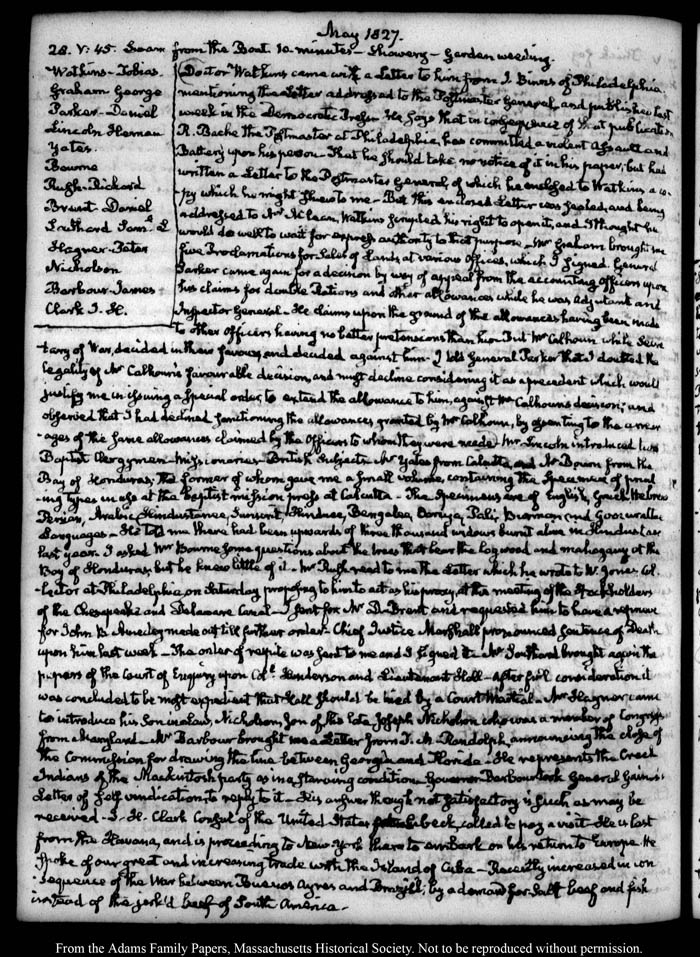 May 1827.
28. V:45. Swam from the Boat 10 minutes — Showery — Garden weeding.
Watkins-Tobias.
Graham George
Parker-Daniel
Lincoln Heman
Yates.
Bourne
Rush-Richard
Brent-Daniel
Southard Saml. L
Hagner-Peter
Nicholson
Barbour-James
Clark I. H.
Doctor Watkins came with a Letter to him from J. Binns of Philadelphia
mentioning the Letter addressed to the Postmaster General, and published last
week in the Democratic Press. He says that in consequence of that publication
R. Bache the Postmaster at Philadelphia, has committed a violent assault and
Battery upon his person—That he should take no notice of it in his paper; but had
written a Letter to the Postmaster General, of which he enclosed to Watkins a co-
py which he might shew to me—But this enclosed Letter was sealed, and being
addressed to Mr McLean, Watkins scrupled his right to open it, and I thought he
would do well to wait for express authority to that purpose—Mr Graham brought me
five Proclamations for Sales of Lands at various offices, which I signed. General
Parker came again for a decision by way of appeal from the accounting officers upon
his claims for double Rations and other allowances while he was adjutant and
Inspector General—He claims upon the ground of the allowances having been made
to other officers having no better pretensions than his. But Mr Calhoun while Secre-
tary of War, decided in their favour, and decided against him—I told General Parker that I doubted the
legality of Mr Calhoun's favourable decision, and must decline considering it as a precedent which would
justify me in issuing a special order, to extend the allowance to him, against Mr Calhoun's decision; and
observed that I had declined sanctioning the allowances granted by Mr Calhoun, by assenting to the arrear-
ages of the same allowances claimed by the officers to whom they were made—Mr Lincoln introduced two
Baptist Clergymen—Missionaries—British Subjects—Mr Yates from Calcutta, and Mr Bourn from the
Bay of Honduras; the former of whom gave me a small volume, containing the Specimens of print-
ing types in use at the baptist mission press at Calcutta—The Specimens are of English, Greek Hebrew
Persian, Arabic, Hindustanee, Sunscrit, Hinduee, Bengalee, Ooriya, Pali, Burman and Goozurattee
Languages—He told me there had been upwards of three thousand widows burnt alive in Hindustan
last year. I asked Mr Bourne some questions about the trees that bear the logwood and mahogany at the
Bay of Honduras; but he knew little of it—Mr Rush read to me the Letter which he wrote to W. Jones Col-
lector at Philadelphia, on Saturday, proposing to him to act as his proxy, at the meeting of the Stockholders
of the Chesapeake and Delaware Canal—I sent for Mr D. Brent and requested him to have a reprieve
for John B. made out till further order—Chief Justice Marshall pronounced sentence of Death
upon him last week—The order of respite was sent to me and I signed it—Mr Southard brought again the
papers of the Court of Enquiry upon Colo. Henderson and Lieutenant Hall—After full consideration it
was concluded to be most expedient that Hall should be tried by a Court Martial—Mr Hagner came
to introduce his Son in Law, Nicholson, Son of the late Joseph Nicholson who was a member of Congress
from Maryland—Mr Barbour brought me a Letter from T. M. Randolph, announcing the close of
the Commission for drawing the line between Georgia and Florida—He represents the Creek
Indians of the Mackintosh party as in a starving condition—Governor Barbour took General Gaines's
Letter of self vindication, to reply to it—His answer though not satisfactory is such as may be
received—I. H. Clark Consul of the United States at Lubeck, called to pay a visit—He is last
from the Havana, and is proceeding to New-York there to embark on his return to Europe. He
spoke of our great and increasing trade with the Island of Cuba—Recently increased in con-
sequence of the War between Buenos Ayres and Brazil; by a demand for salt beef and fish
instead of the jerk'd beef of South America.—
From the Adams Family Papers, Massachusetts Historical Society. Not to be reproduced without permission.